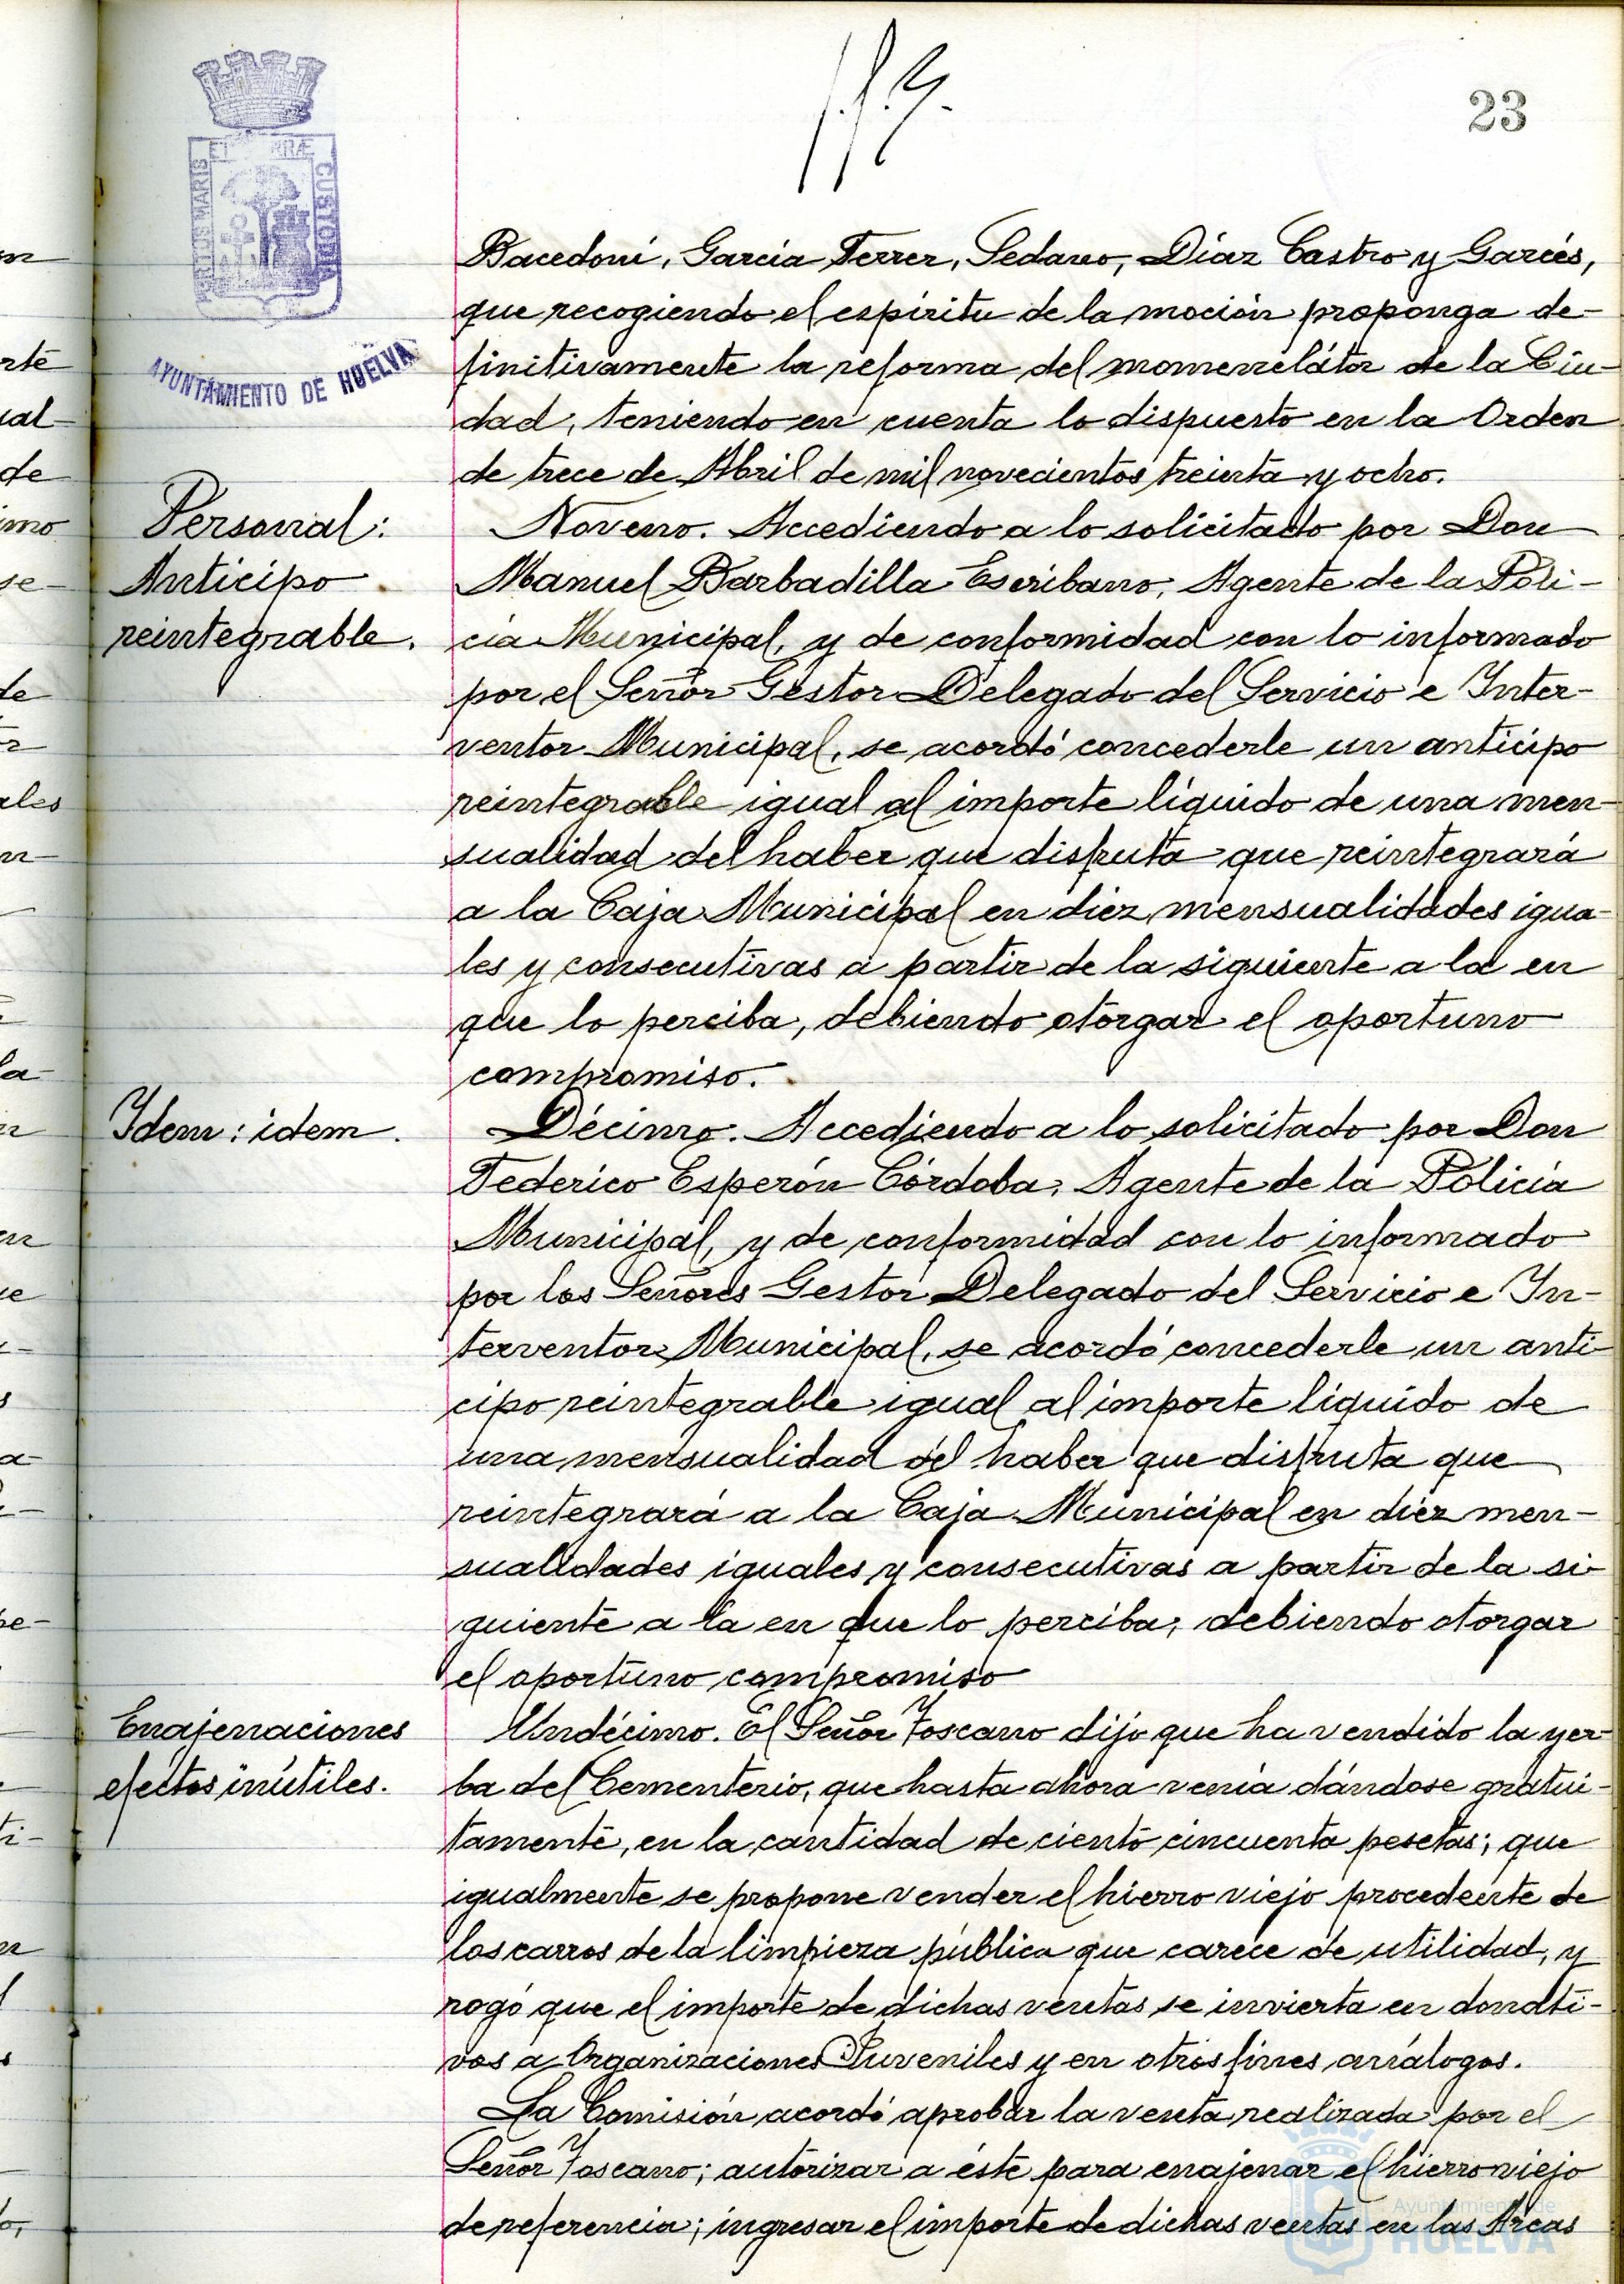 23
PORTUS MARIS ET TERRÆ CUSTODIA
AYUNTAMIENTO DE HUELVA
Bacedoni, García Ferrer, Sedano, Díaz Castro y Garcés,
que recogiendo el espíritu de la moción proponga de-
finitivamente la reforma del momenrelátor de la Ciu-
dad, teniendo en cuenta lo dispuesto en la Orden
de trece de Abril de mil novecientos treinta y ocho.
Personal:
Anticipo
reintegrable.
Noveno. Accediendo a lo solicitado por Don
Manuel Barbadilla Escribano, Agente de la Poli-
cía Municipal, y de conformidad con lo informado
por el Señor Gestor Delegado del Servicio e Inter-
ventor Municipal, se acordó concederle un anticipo
reintegrable igual al importe líquido de una men-
sualidad del haber que disfruta que reintegrará
a la Caja Municipal en diez mensualidades igua-
les y consecutivas a partir de la siguiente a la en
que lo perciba, debiendo otorgar el oportuno
compromiso.
Idem: idem.
Décimo. Accediendo a lo solicitado por Don
Federico Esperón Córdoba, Agente de la Policía
Municipal, y de conformidad con lo informado
por los Señores Gestor Delegado del Servicio e In-
terventor Municipal, se acordó concederle un anti-
cipo reintegrable igual al importe líquido de
una mensualidad del haber que disfruta que
reintegrará a la Caja Municipal en diez men-
sualidades iguales y consecutivas a partir de la si-
guiente a la en que lo perciba, debiendo otorgar
el oportuno compromiso
Enajenaciones
efectos inútiles.
Undécimo. El Señor Toscano dijo que ha vendido la yer-
ba del Cementerio, que hasta ahora venía dándose gratui-
tamente, en la cantidad de ciento cincuenta pesetas; que
igualmente se propone vender el hierro viejo procedente de
los carros de la limpieza pública que carece de utilidad, y
rogó que el importe de dichas ventas se invierta en donati-
vos a Organizaciones Juveniles y en otros fines análogos.
La Comisión acordó aprobar la venta realizada por el
Señor Toscano; autorizar a éste para enajenar el hierro viejo
de referencia; ingresar el importe de dichas ventas en las Arcas
Ayuntamiento de
HUELVA